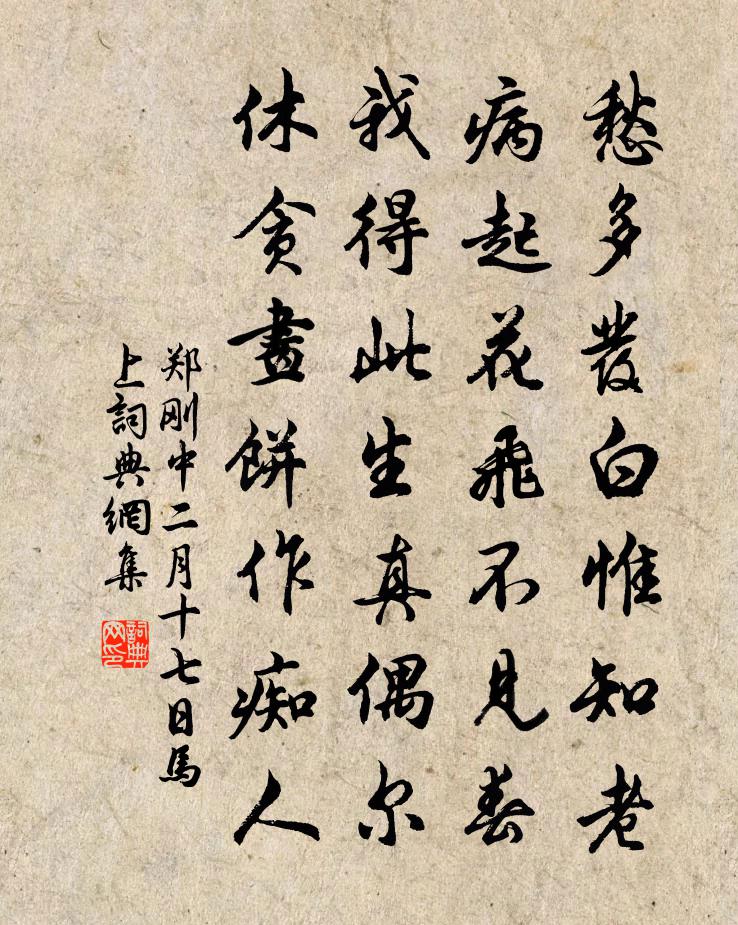 愁多發白惟知老
病起花飛不見春
我得此生真偶尔
休貪畫餅作痴人
郑刚中二月十七日馬
上詞典網集
詞典
网印